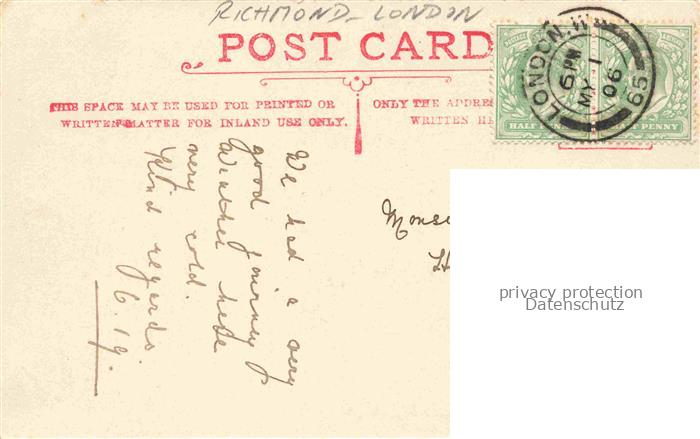 RICHMOND - LONDON
POST CARD
THIS SPACE MAY BE USED FOR PRINTED OR
WRITTEN MATTER FOR INLAND USE ONLY.
ONLY THE ADDRE
WRITTEN HE
LONDON. W
6 PM
MY 1
06
65
HALF PEN
PENNY
We had a very
good journey
Weather here
very cold.
Kind regards.
Mons
H
privacy protection
Datenschutz